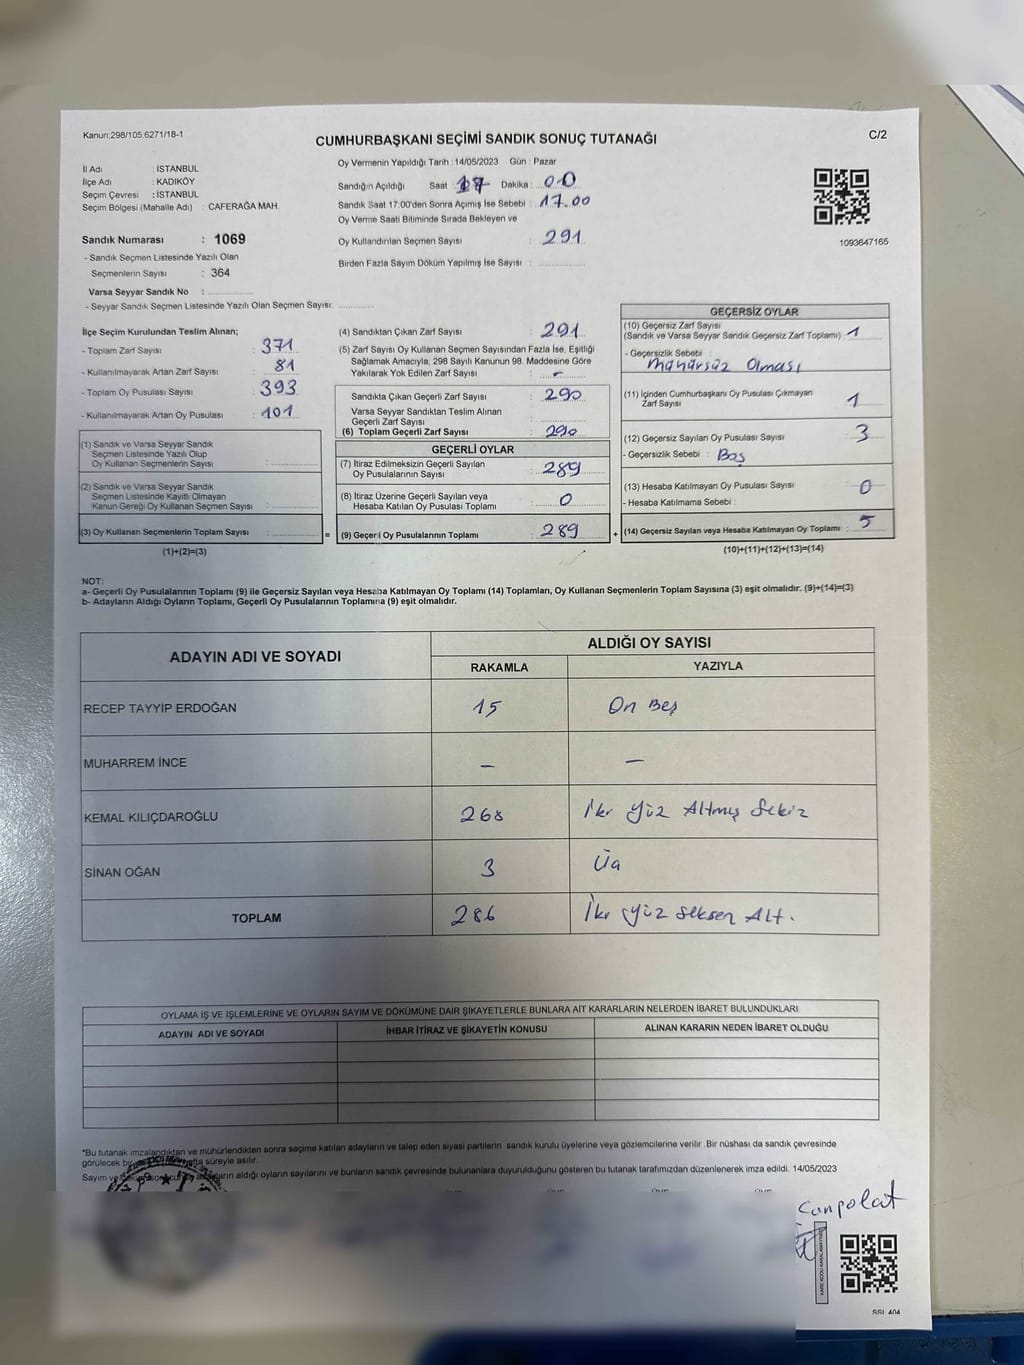 Kanun:298/105 6271/18-1
CUMHURBAŞKANI SEÇİMİ SANDIK SONUÇ TUTANAĞI
C/2
İl Adı : İSTANBUL
İlçe Adı : KADIKÖY
Seçim Çevresi : İSTANBUL
Seçim Bölgesi (Mahalle Adı) : CAFERAĞA MAH.
Oy Vermenin Yapıldığı Tarih : 14/05/2023 Gün : Pazar
Sandığın Açıldığı Saat : 17 Dakika : 00
Sandık Saat 17:00'den Sonra Açımış İse Sebebi : 17.00
Oy Verme Saati Bitiminde Sırada Bekleyen ve
Oy Kullandırılan Seçmen Sayısı : 291
Birden Fazla Sayım Döküm Yapılmış İse Sayısı :
1093647165
Sandık Numarası : 1069
- Sandık Seçmen Listesinde Yazılı Olan
Seçmenlerin Sayısı : 364
Varsa Seyyar Sandık No :
- Seyyar Sandık Seçmen Listesinde Yazılı Olan Seçmen Sayısı:
İlçe Seçim Kurulundan Teslim Alınan;
- Toplam Zarf Sayısı : 371
- Kullanılmayarak Artan Zarf Sayısı : 81
- Toplam Oy Pusulası Sayısı : 393
- Kullanılmayarak Artan Oy Pusulası : 101
(1) Sandık ve Varsa Seyyar Sandık
Seçmen Listesinde Yazılı Olup
Oy Kullanan Seçmenlerin Sayısı :
(2) Sandık ve Varsa Seyyar Sandık
Seçmen Listesinde Kayıtlı Olmayan
Kanun Gereği Oy Kullanan Seçmen Sayısı :
(3) Oy Kullanan Seçmenlerin Toplam Sayısı :
(1)+(2)=(3)
(4) Sandıktan Çıkan Zarf Sayısı : 291
(5) Zarf Sayısı Oy Kullanan Seçmen Sayısından Fazla İse, Eşitliği
Sağlamak Amacıyla; 298 Sayılı Kanunun 98. Maddesine Göre
Yakılarak Yok Edilen Zarf Sayısı : -
Sandıkta Çıkan Geçerli Zarf Sayısı : 290
Varsa Seyyar Sandıktan Teslim Alınan
Geçerli Zarf Sayısı :
(6) Toplam Geçerli Zarf Sayısı : 290
GEÇERLİ OYLAR
(7) İtiraz Edilmeksizin Geçerli Sayılan
Oy Pusulalarının Sayısı : 289
(8) İtiraz Üzerine Geçerli Sayılan veya
Hesaba Katılan Oy Pusulası Toplamı : 0
= (9) Geçerli Oy Pusulalarının Toplamı : 289 +
GEÇERSİZ OYLAR
(10) Geçersiz Zarf Sayısı
(Sandık ve Varsa Seyyar Sandık Geçersiz Zarf Toplamı) : 1
- Geçersizlik Sebebi :
Mühürsüz Olması
(11) İçinden Cumhurbaşkanı Oy Pusulası Çıkmayan
Zarf Sayısı : 1
(12) Geçersiz Sayılan Oy Pusulası Sayısı : 3
- Geçersizlik Sebebi : Boş
(13) Hesaba Katılmayan Oy Pusulası Sayısı : 0
- Hesaba Katılmama Sebebi :
(14) Geçersiz Sayılan veya Hesaba Katılmayan Oy Toplamı : 5
(10)+(11)+(12)+(13)=(14)
NOT:
a- Geçerli Oy Pusulalarının Toplamı (9) ile Geçersiz Sayılan veya Hesaba Katılmayan Oy Toplamı (14) Toplamları, Oy Kullanan Seçmenlerin Toplam Sayısına (3) eşit olmalıdır. (9)+(14)=(3)
b- Adayların Aldığı Oyların Toplamı, Geçerli Oy Pusulalarının Toplamına (9) eşit olmalıdır.
ADAYIN ADI VE SOYADI
ALDIĞI OY SAYISI
RAKAMLA YAZIYLA
RECEP TAYYİP ERDOĞAN 15 On Beş
MUHARREM İNCE – –
KEMAL KILIÇDAROĞLU 268 İki Yüz Altmış Sekiz
SİNAN OĞAN 3 Üç
TOPLAM 286 İki yüz Seksen Altı
OYLAMA İŞ VE İŞLEMLERİNE VE OYLARIN SAYIM VE DÖKÜMÜNE DAİR ŞİKAYETLERLE BUNLARA AİT KARARLARIN NELERDEN İBARET BULUNDUKLARI
ADAYIN ADI VE SOYADI İHBAR İTİRAZ VE ŞİKAYETİN KONUSU ALINAN KARARIN NEDEN İBARET OLDUĞU
*Bu tutanak imzalandıktan ve mühürlendikten sonra seçime katılan adayların ve talep eden siyasi partilerin sandık kurulu üyelerine veya gözlemcilerine verilir. Bir nüshası da sandık çevresinde
görülecek bir süreyle asılır.
Sayım ve aldığı oyların sayılarını ve bunların sandık çevresinde bulunanlara duyurulduğunu gösteren bu tutanak tarafımızdan düzenlenerek imza edildi. 14/05/2023
Canpolat